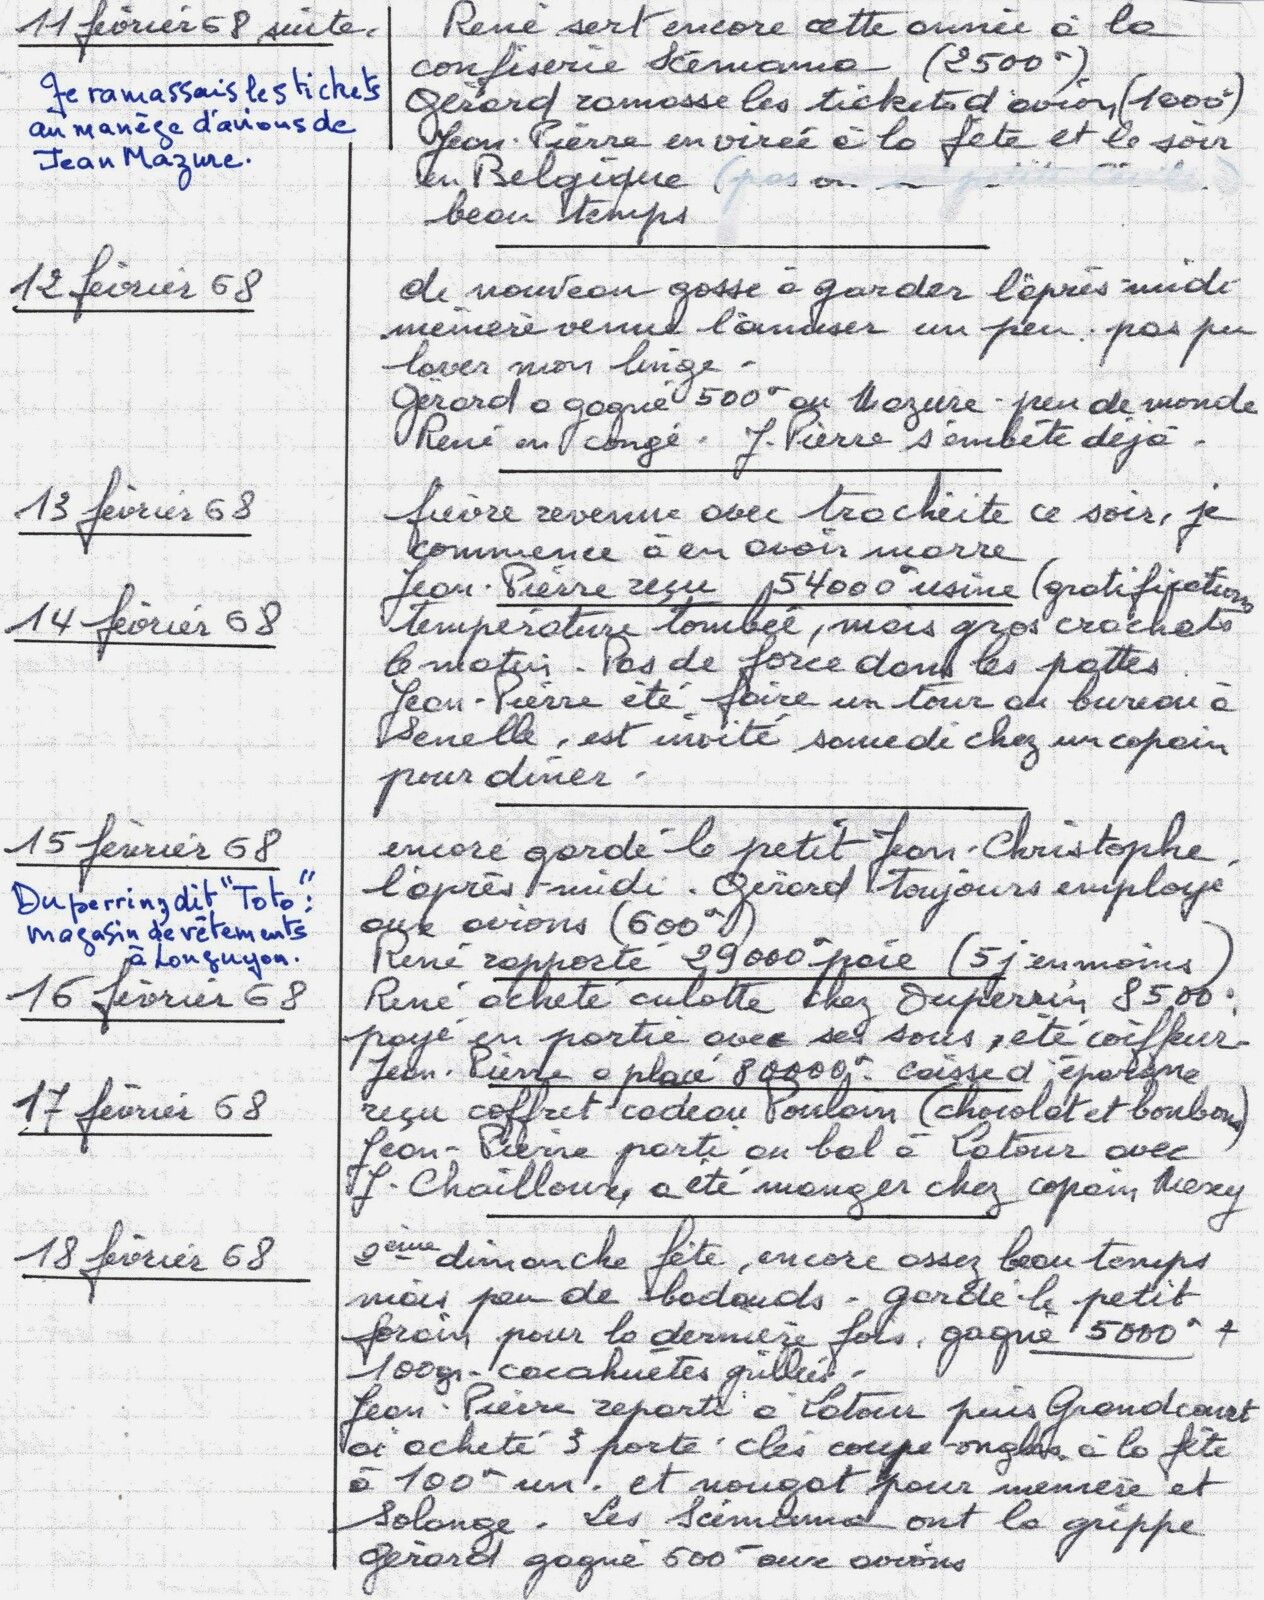 11 février 68 suite.
Je ramassais les tickets
au manège d'avions de
Jean Mazure.
René sert encore cette année à la
confiserie Scémama (2500ᶠ)
Gérard ramasse les tickets d'avion (1000ᶠ)
Jean-Pierre en virée à la fête et le soir
en Belgique (pas
beau temps
12 février 68
de nouveau gosse à garder l'après-midi
mémère venue l'amuser un peu. pas pu
laver mon linge.
Gérard a gagné 500ᶠ au Mazure. peu de monde
René en congé. J. Pierre s'embête déjà.
13 février 68
fièvre revenue avec trachéite ce soir, je
commence à en avoir marre
Jean-Pierre reçu 54000ᶠ usine (gratification
14 février 68
température tombée, mais gros crachats
le matin. Pas de force dans les pattes.
Jean-Pierre été faire un tour au bureau à
Senelle, est invité samedi chez un copain
pour dîner.
15 février 68
Duperring dit "Toto":
magasin de vêtements
à Longuyon.
encore gardé le petit Jean-Christophe,
l'après-midi. Gérard toujours employé
aux avions (600ᶠ)
René rapporté 29000ᶠ paie (5j en moins)
16 février 68
René acheté culotte chez Duperrin 8500.
payé en partie avec ses sous, été coiffeur.
Jean-Pierre a placé 80000ᶠ caisse d'épargne
17 février 68
reçu coffret cadeau Poulain (chocolat et bonbons)
Jean-Pierre parti au bal à Latour avec
J. Chailloux, a été manger chez copain Mexy
18 février 68
2ème dimanche fête, encore assez beau temps
mais peu de badauds. gardé le petit
forain pour la dernière fois, gagné 5000ᶠ +
100gr cacahuètes grillées.
Jean-Pierre reparti à Latour puis Grandcourt
ai acheté 3 porte-clés coupe-ongles à la fête
à 100ᶠ un. et nougat pour mémère et
Solange. Les Scémama ont la grippe
Gérard gagné 600ᶠ aux avions